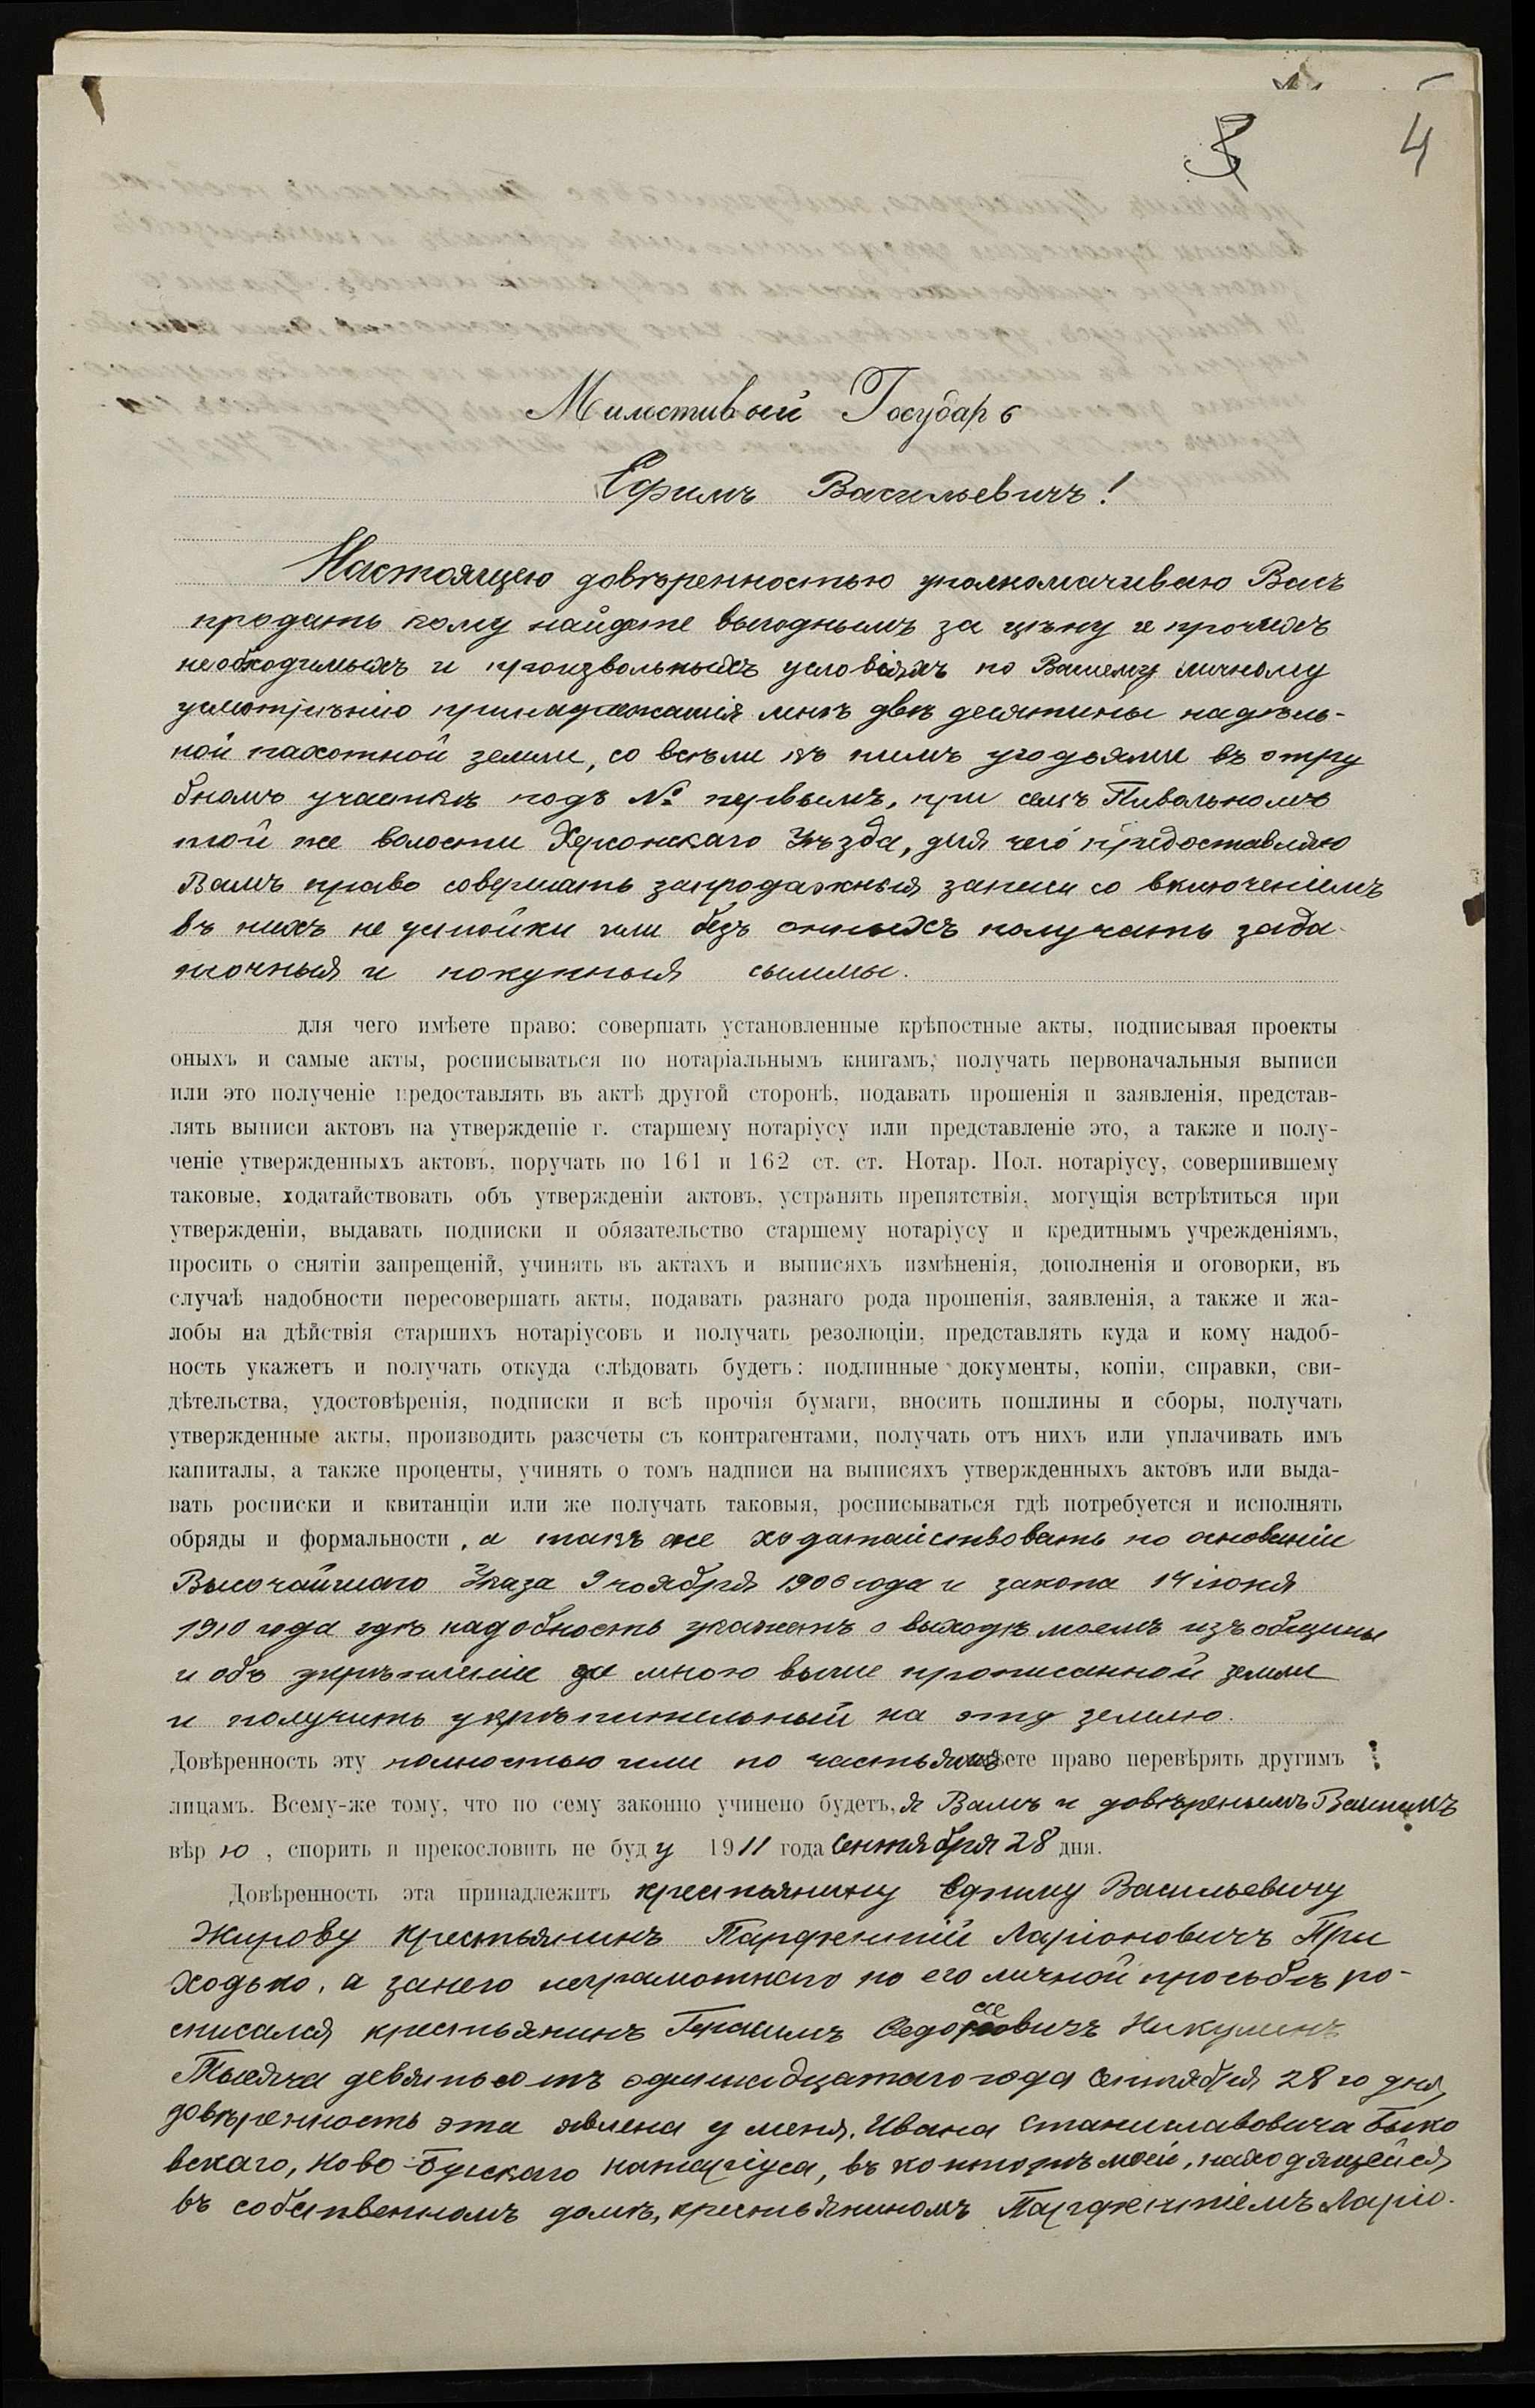 4
Милостивый Государь
Ефимъ Васильевичъ!
Настоящею довѣренностью уполномачиваю Васъ
продать кому найдете выгоднымъ за цѣну и прочихъ
необходимыхъ и произвольныхъ условіяхъ по Вашему личному
усмотрѣнію принадлежащія мнѣ двѣ десятины надѣль-
ной пахотной земли, со всѣми въ нимъ угодьями въ отру
бномъ участкѣ подъ № первымъ, при селѣ Привольномъ
той же волости Херсонскаго Уѣзда, для чего предоставляю
Вамъ право совершать запродажныя записи со включеніемъ
въ нихъ не устойки или безъ оныхъ получать зада-
точныя и покупныя суммы.
для чего имѣете право: совершать установленные крѣпостные акты, подписывая проекты
оныхъ и самые акты, росписываться по нотаріальнымъ книгамъ, получать первоначальныя выписи
или это полученіе предоставлять въ актѣ другой сторонѣ, подавать прошенія и заявленія, представ-
лять выписи актовъ на утвержденіе г. старшему нотаріусу или представленіе это, а также и полу-
ченіе утвержденныхъ актовъ, поручать по 161 и 162 ст. ст. Нотар. Пол. нотаріусу, совершившему
таковые, ходатайствовать объ утвержденіи актовъ, устранять препятствія, могущія встрѣтиться при
утвержденіи, выдавать подписки и обязательство старшему нотаріусу и кредитнымъ учрежденіямъ,
просить о снятіи запрещеній, учинять въ актахъ и выписяхъ измѣненія, дополненія и оговорки, въ
случаѣ надобности пересовершать акты, подавать разнаго рода прошенія, заявленія, а также и жа-
лобы на дѣйствія старшихъ нотаріусовъ и получать резолюціи, представлять куда и кому надоб-
ность укажетъ и получать откуда слѣдовать будетъ: подлинные документы, копіи, справки, сви-
дѣтельства, удостовѣренія, подписки и всѣ прочія бумаги, вносить пошлины и сборы, получать
утвержденные акты, производить разсчеты съ контрагентами, получать отъ нихъ или уплачивать имъ
капиталы, а также проценты, учинять о томъ надписи на выписяхъ утвержденныхъ актовъ или выда-
вать росписки и квитанціи или же получать таковыя, росписываться гдѣ потребуется и исполнять
обряды и формальности, а такъ же ходатайствовать по основаніи
Высочайшаго Указа 9 ноября 1906 года и закона 14 іюня
1910 года гдѣ надобность укажетъ о выходѣ моемъ изъ общины
и объ укрѣпленіи за мною выше прописанной земли
и получить укрѣпительный на эту землю.
Довѣренность эту полностью или по частямъ имѣете право перевѣрять другимъ
лицамъ. Всему-же тому, что по сему законно учинено будетъ, я Вамъ и довѣреннымъ Вашимъ
вѣрю, спорить и прекословить не буду 1911 года Сентября 28 дня.
Довѣренность эта принадлежитъ крестьянину Ефиму Васильевичу
Жирову Крестьянинъ Парфентій Ларіоновичъ При
ходько, а занего неграмотнаго по его личной просьбѣ ро-
списался крестьянинъ Герасимъ Никулинъ
Тысяча девятьсотъ одиннадцатаго года Сентября 28 го дня,
довѣренность эта явлена у меня, Ивана Станиславовича Быко
вскаго, Ново-Бугскаго нотаріуса, въ конторѣ моей, находящейся
въ собственномъ домѣ, крестьяниномъ Парфентіемъ Ларіо-